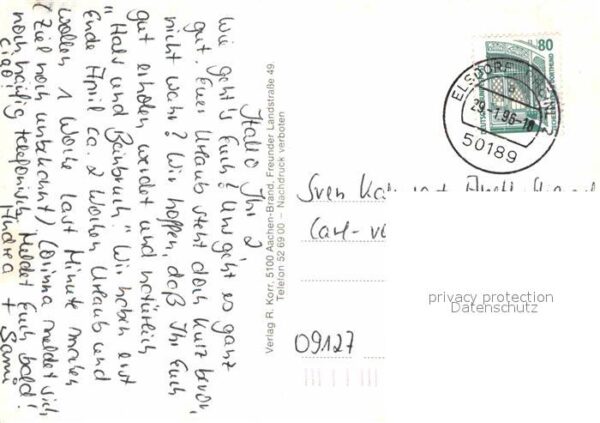 Hallo Ihr 2
Wie geht's Euch? Uns geht es ganz
gut. Euer Urlaub steht doch kurz bevor,
nicht wahr? Wir hoffen, daß Ihr Euch
gut erholen werdet und natürlich
"Hals und Beinbruch". Wir haben erst
Ende April ca. 2 Wochen Urlaub und
wollen 1 Woche Last Minute machen
(Ziel noch unbekannt) Corinna meldet sich
noch häufig telefonisch. Meldet Euch bald!
Ciao! Andrea + Sami
Verlag R. Korr, 5100 Aachen-Brand, Freunder Landstraße 49,
Telefon 52 69 00 – Nachdruck verboten
80
ELSDORF
29.-1.96-18
50189
Sven
Carl-v
09127
privacy protection
Datenschutz